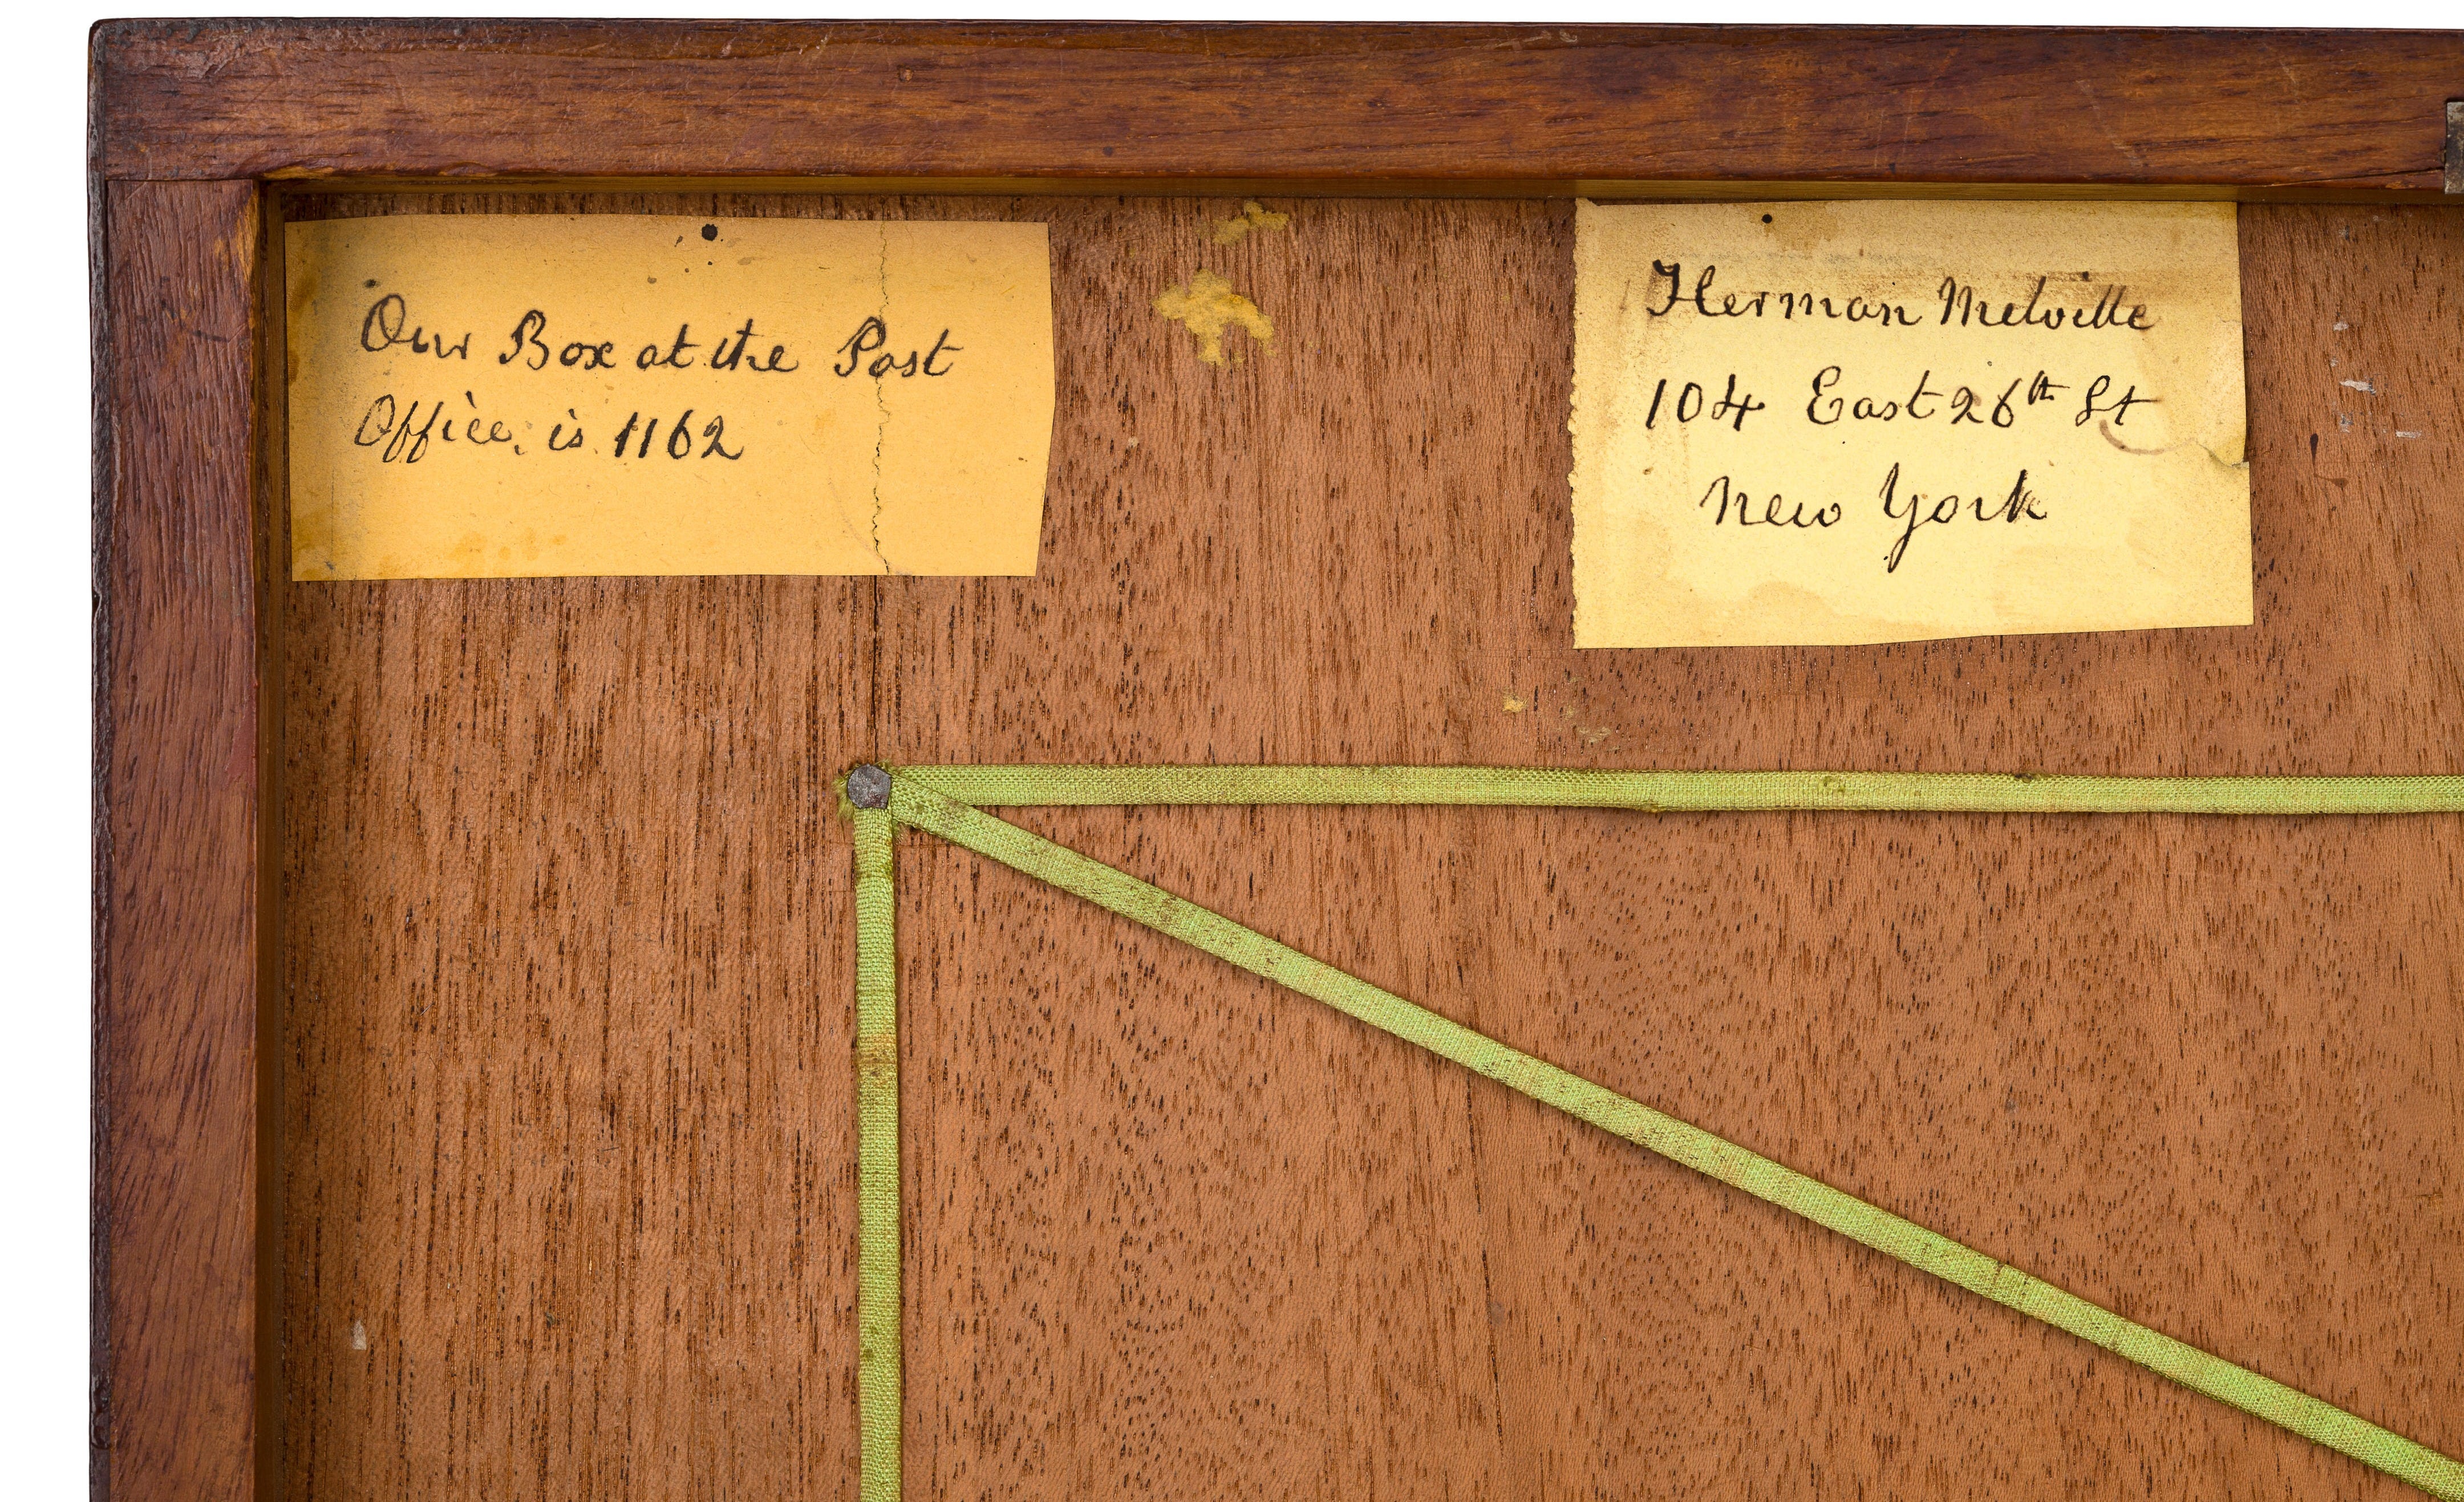 Our Box at the Post
Office, is 1162
Herman Melville
104 East 26th St
New York